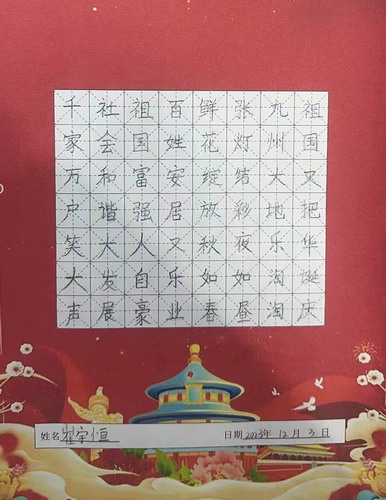 祖国又把华诞庆
九州大地乐淘淘
张灯结彩夜如昼
鲜花绽放秋如春
百姓安居又乐业
祖国富强人自豪
社会和谐大发展
千家万户笑大声
姓名 崔宇恒 日期 2023年 12 月 3 日